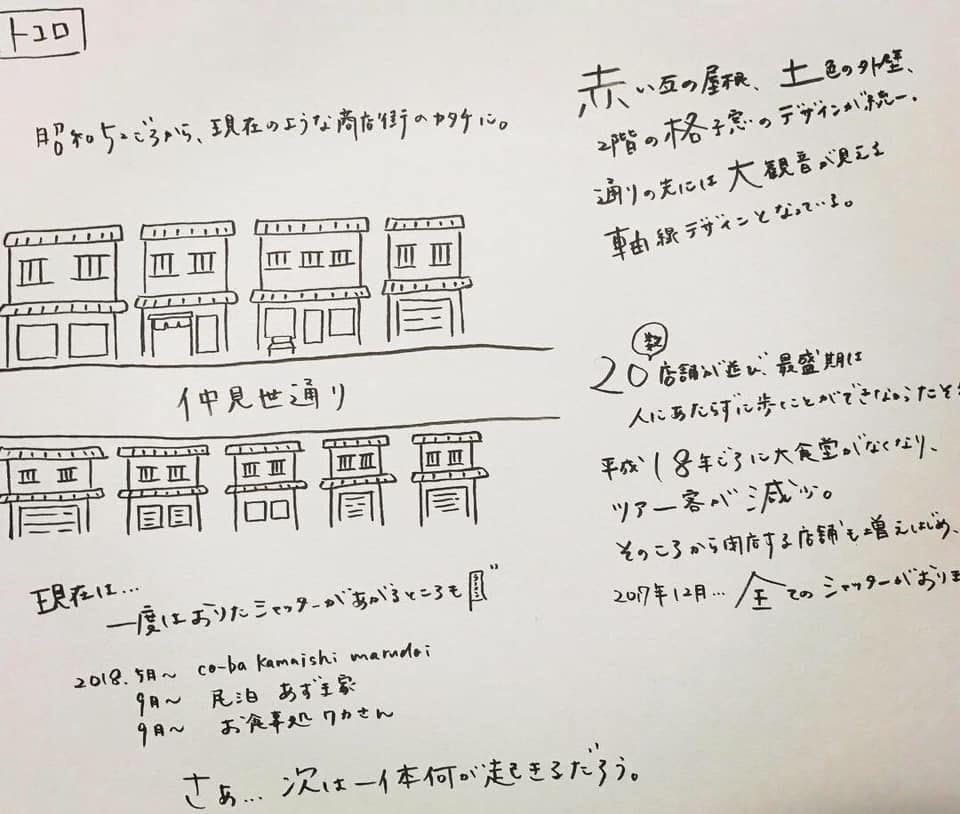 トコロ
昭和52ごろから、現在のような商店街のカタチに。
仲見世通り
赤い瓦の屋根、土色の外壁、
2階の格子窓のデザインが統一。
通りの先には大観音が見える
軸線デザインとなっている。
20数店舗が並び、最盛期は
人にあたらずに歩くことができなかったそ
平成18年ごろに大食堂がなくなり、
ツアー客が減少。
そのころから閉店する店舗も増えはじめ、
2017年12月... 全てのシャッターがおりま
現在は...
一度はおりたシャッターがあがるところも
2018. 5月〜 co-ba kamaishi marudai
9月〜 民泊 あずま家
9月〜 お食事処 ワカさん
さぁ... 次は一体何が起きるだろう。